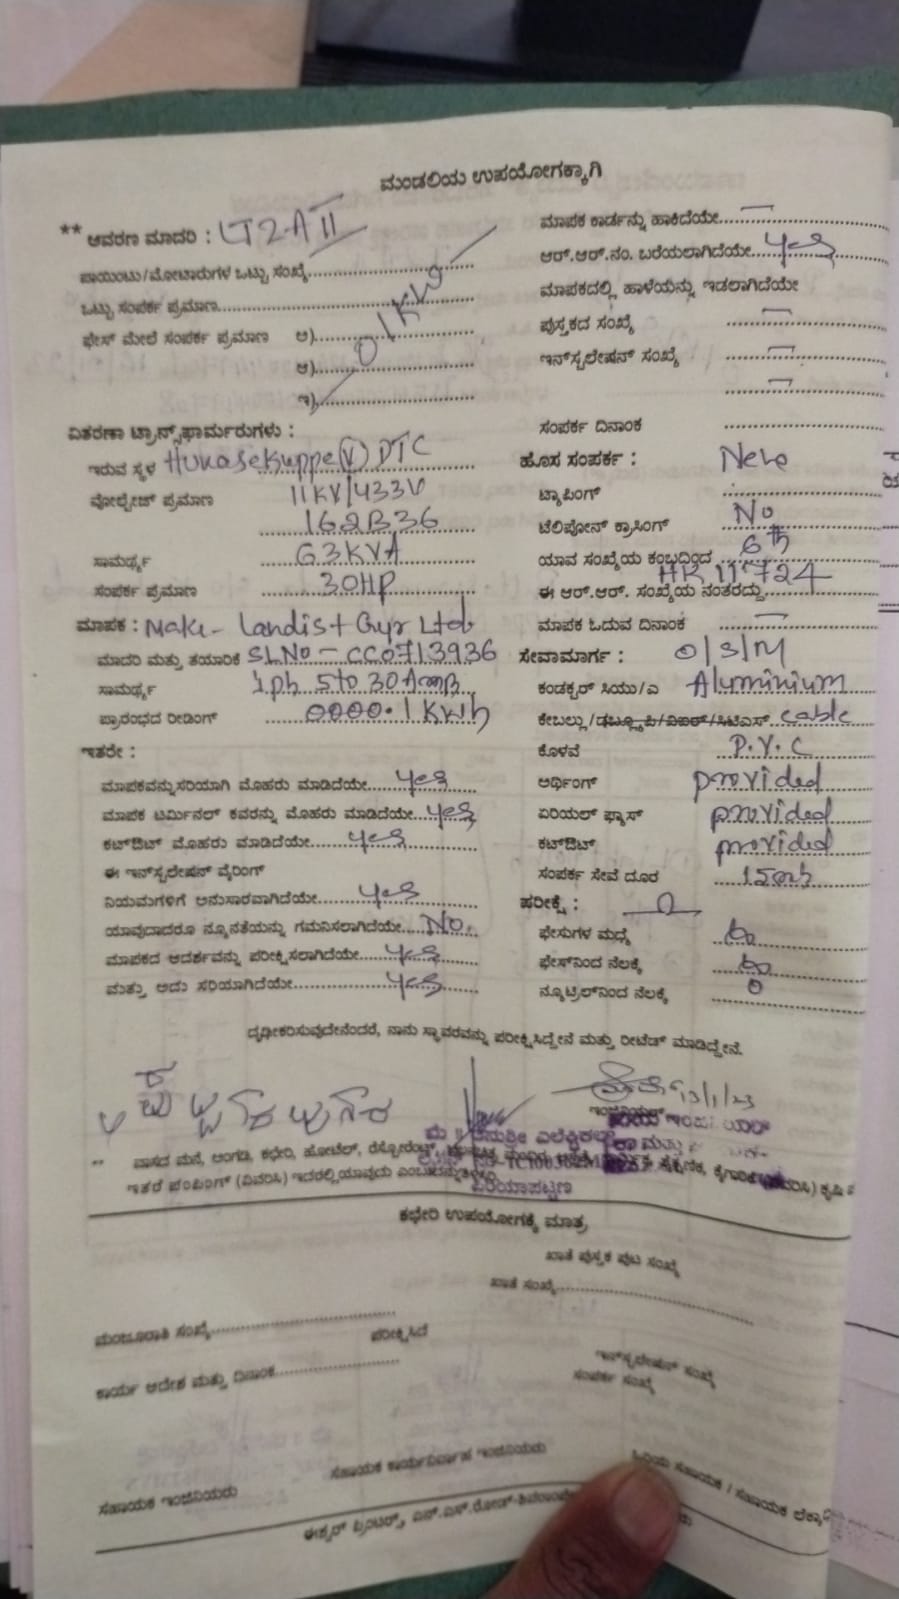 ಮಂಡಲಿಯ ಉಪಯೋಗಕ್ಕಾಗಿ
** ಆವರಣ ಮಾದರಿ : LT2AII
ಪಾಯಿಂಟು/ಮೋಟಾರುಗಳ ಒಟ್ಟು ಸಂಖ್ಯೆ
ಒಟ್ಟು ಸಂಪರ್ಕ ಪ್ರಮಾಣ
ಫೇಸ್ ಮೇಲೆ ಸಂಪರ್ಕ ಪ್ರಮಾಣ ಅ)
ಆ)
ಇ)
01KW
ವಿತರಣಾ ಟ್ರಾನ್ಸ್‌ಫಾರ್ಮರುಗಳು :
ಇರುವ ಸ್ಥಳ Hunasekuppe (V) DTC
ವೋಲ್ಟೇಜ್ ಪ್ರಮಾಣ 11KV/433V
162B36
ಸಾಮರ್ಥ್ಯ 63KVA
ಸಂಪರ್ಕ ಪ್ರಮಾಣ 30HP
ಮಾಪಕ : Make - Landist Gyr Ltd
ಮಾದರಿ ಮತ್ತು ತಯಾರಿಕೆ SLNo - CC0713936
ಸಾಮರ್ಥ್ಯ 1ph 5 to 30Amp
ಪ್ರಾರಂಭದ ರೀಡಿಂಗ್ 0000.1 KWh
ಇತರೇ :
ಮಾಪಕವನ್ನುಸರಿಯಾಗಿ ಮೊಹರು ಮಾಡಿದೆಯೇ yes
ಮಾಪಕ ಟರ್ಮಿನಲ್ ಕವರನ್ನು ಮೊಹರು ಮಾಡಿದೆಯೇ yes
ಕಟ್‌ಔಟ್ ಮೊಹರು ಮಾಡಿದೆಯೇ yes
ಈ ಇನ್‌ಸ್ಟಲೇಷನ್ ವೈರಿಂಗ್
ನಿಯಮಗಳಿಗೆ ಅನುಸಾರವಾಗಿದೆಯೇ yes
ಯಾವುದಾದರೂ ನ್ಯೂನತೆಯನ್ನು ಗಮನಿಸಲಾಗಿದೆಯೇ No.
ಮಾಪಕದ ಆದರ್ಶವನ್ನು ಪರೀಕ್ಷಿಸಲಾಗಿದೆಯೇ yes
ಮತ್ತು ಅದು ಸರಿಯಾಗಿದೆಯೇ yes
ಮಾಪಕ ಕಾರ್ಡನ್ನು ಹಾಕಿದೆಯೇ —
ಆರ್.ಆರ್.ನಂ. ಬರೆಯಲಾಗಿದೆಯೇ yes
ಮಾಪಕದಲ್ಲಿ ಹಾಳೆಯನ್ನು ಇಡಲಾಗಿದೆಯೇ
ಪುಸ್ತಕದ ಸಂಖ್ಯೆ —
ಇನ್‌ಸ್ಟಲೇಷನ್ ಸಂಖ್ಯೆ —
—
ಸಂಪರ್ಕ ದಿನಾಂಕ
ಹೊಸ ಸಂಪರ್ಕ : New
ಟ್ಯಾಪಿಂಗ್
ಟೆಲಿಪೋನ್ ಕ್ರಾಸಿಂಗ್ No
ಯಾವ ಸಂಖ್ಯೆಯ ಕಂಬದಿಂದ 6th
ಈ ಆರ್.ಆರ್. ಸಂಖ್ಯೆಯ ನಂತರದ್ದು HK 11724
ಮಾಪಕ ಓದುವ ದಿನಾಂಕ —
ಸೇವಾಮಾರ್ಗ : O/S/M
ಕಂಡಕ್ಟರ್ ಸಿಯು/ಎ Aluminium
ಕೇಬಲ್ಲು/ಡಬ್ಲ್ಯೂಪಿ/ವಿಐಆರ್/ಸಿಟಿಎಸ್ cable
ಕೊಳವೆ P.V.C
ಅರ್ಥಿಂಗ್ provided
ಏರಿಯಲ್ ಫ್ಯೂಸ್ provided
ಕಟ್‌ಔಟ್ provided
ಸಂಪರ್ಕ ಸೇವೆ ದೂರ 15mts
ಪರೀಕ್ಷೆ : Ω
ಫೇಸುಗಳ ಮಧ್ಯೆ ∞
ಫೇಸ್‌ನಿಂದ ನೆಲಕ್ಕೆ ∞
ನ್ಯೂಟ್ರಲ್‌ನಿಂದ ನೆಲಕ್ಕೆ 0
ದೃಢೀಕರಿಸುವುದೇನೆಂದರೆ, ನಾನು ಸ್ಥಾವರವನ್ನು ಪರೀಕ್ಷಿಸಿದ್ದೇನೆ ಮತ್ತು ರೀಟೆಡ್ ಮಾಡಿದ್ದೇನೆ.
13/1/23
ಇಂಜಿನಿಯರ್
ಎಲೆಕ್ಟ್ರಿಕಲ್ಸ್
** ವಾಸದ ಮನೆ, ಅಂಗಡಿ, ಕಛೇರಿ, ಹೋಟೆಲ್, ರೆಸ್ಟೋರೆಂಟ್,
ಇತರೆ ಪಂಪಿಂಗ್ (ವಿವರಿಸಿ) ಇದರಲ್ಲಿಯಾವುದು
ಪಿರಿಯಾಪಟ್ಟಣ
ಕಛೇರಿ ಉಪಯೋಗಕ್ಕೆ ಮಾತ್ರ
ಖಾತೆ ಪುಸ್ತಕ ಪುಟ ಸಂಖ್ಯೆ
ಖಾತೆ ಸಂಖ್ಯೆ
ಮಂಜೂರಾತಿ ಸಂಖ್ಯೆ
ಪರೀಕ್ಷಿಸಿದೆ
ಕಾರ್ಯ ಆದೇಶ ಮತ್ತು ದಿನಾಂಕ
ಇನ್‌ಸ್ಟಲೇಷನ್ ಸಂಖ್ಯೆ
ಸಂಪರ್ಕ ಸಂಖ್ಯೆ
ಸಹಾಯಕ ಇಂಜಿನಿಯರು
ಸಹಾಯಕ ಕಾರ್ಯನಿರ್ವಾಹ ಇಂಜಿನಿಯರು
ಹಿರಿಯ ಸಹಾಯಕ / ಸಹಾಯಕ
ಈಶ್ವರ್ ಪ್ರಿಂಟರ್ಸ್, ಎನ್.ಎಸ್.ರೋಡ್